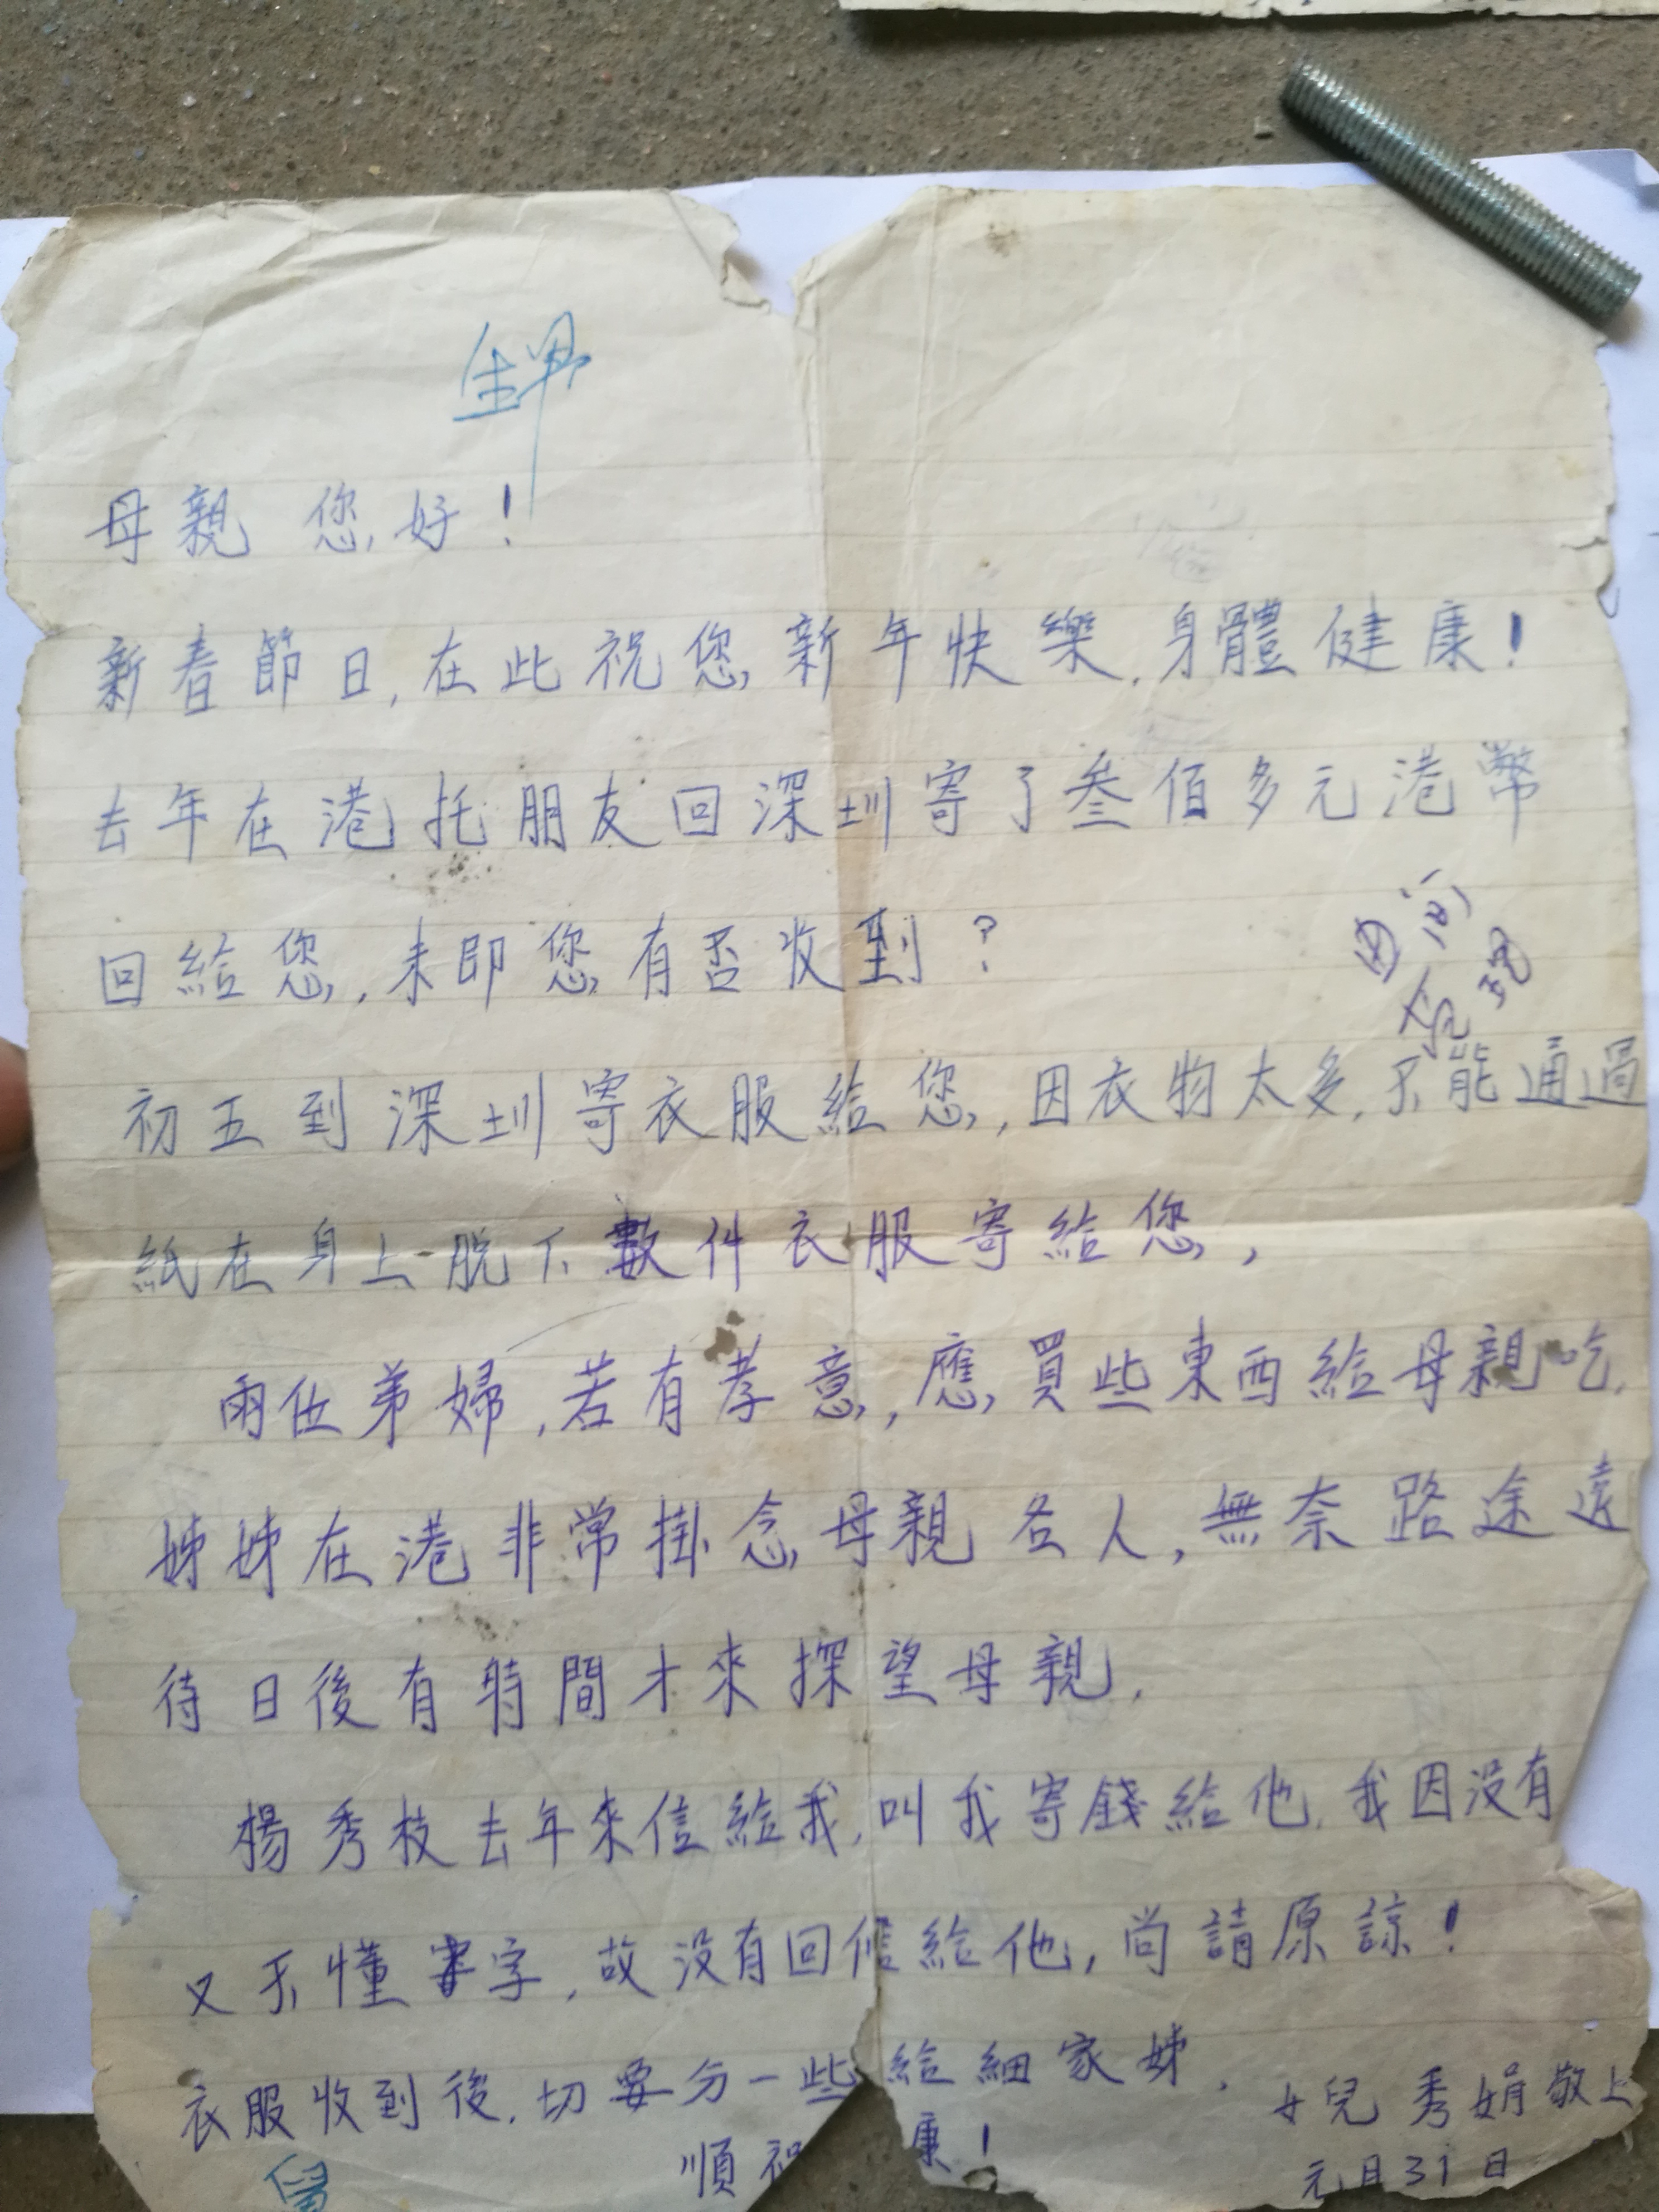 母親 您好！
新春節日，在此祝您新年快樂，身體健康！
去年在港托朋友回深圳寄了叁佰多元港幣
回給您，未即您有否收到？
初五到深圳寄衣服給您，因衣物太多，不能通過
紙在身上脱下數件衣服寄給您，
兩位弟婦，若有孝意，應買些東西給母親吃，
姊姊在港非常掛念母親各人，無奈路途遠
待日後有時間才來探望母親，
楊秀枝去年來信給我，叫我寄錢給他，我因没有
又不懂寫字，故没有回信給他，尚請原諒！
衣服收到後，切要分一些給細家姊，
順祝 康！
女兒 秀娟敬上
元月31日